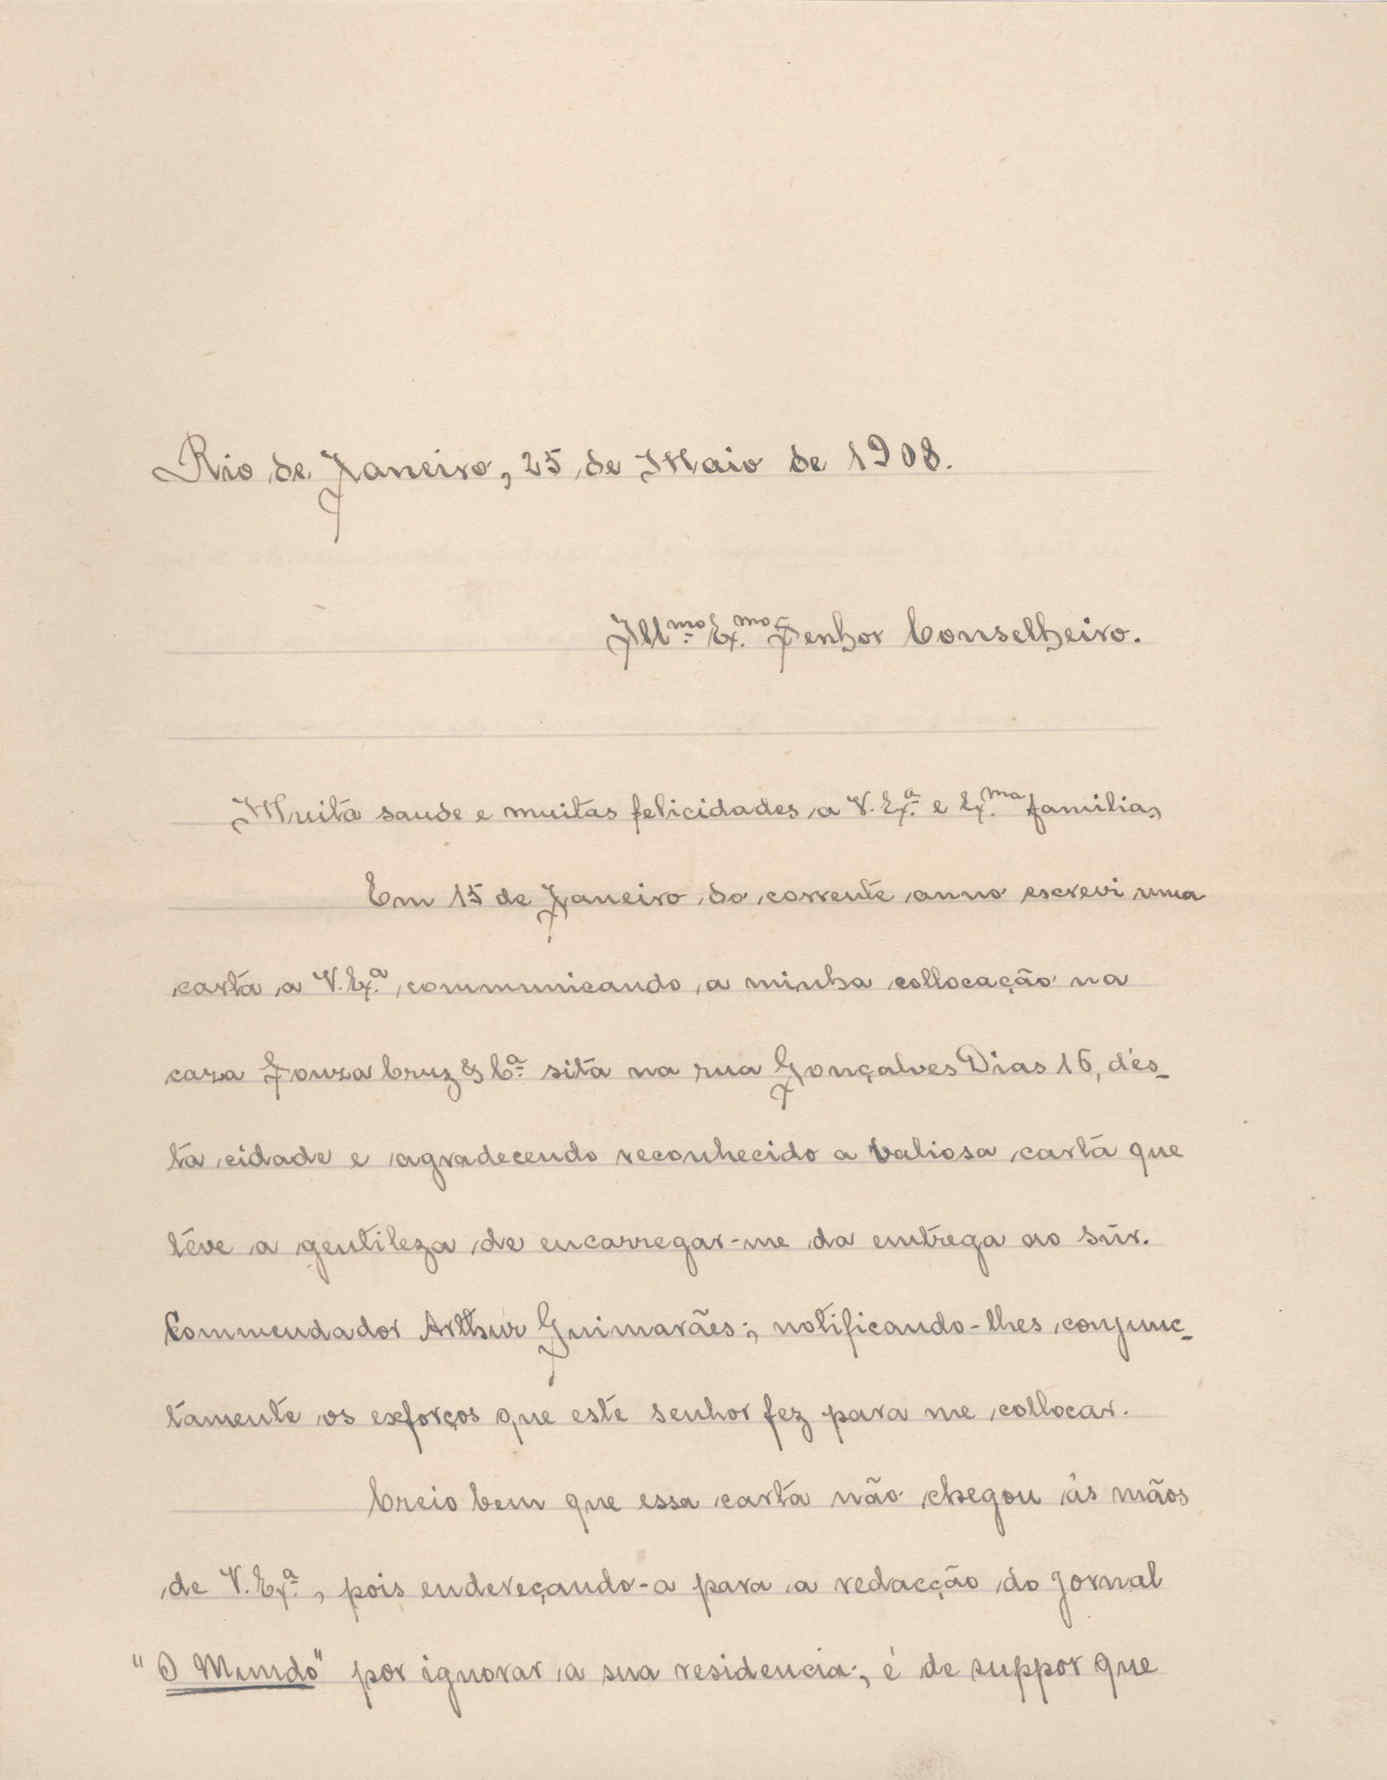 Rio de Janeiro, 25 de Maio de 1908.
Illmo. Ex.mo Senhor Conselheiro.
Muita saude e muitas felicidades a V. Exª. e Ex.ma familia,
Em 15 de Janeiro do corrente anno escrevi uma
carta a V. Exª. communicando a minha collocação na
caza Souza Cruz & Cª. sita na rua Gonçalves Dias 16, d'es-
ta cidade e agradecendo reconhecido a valiosa carta que
téve a gentileza de encarregar-me da entrega ao snr.
Commendador Arthur Guimarães; notificando-lhes conjunc-
tamente os exforços que este senhor fez para me collocar.
Creio bem que essa carta não chegou ás mãos
de V. Exª, pois endereçando-a para a redacção do jornal
"O Mundo" por ignorar a sua residencia; é de suppor que